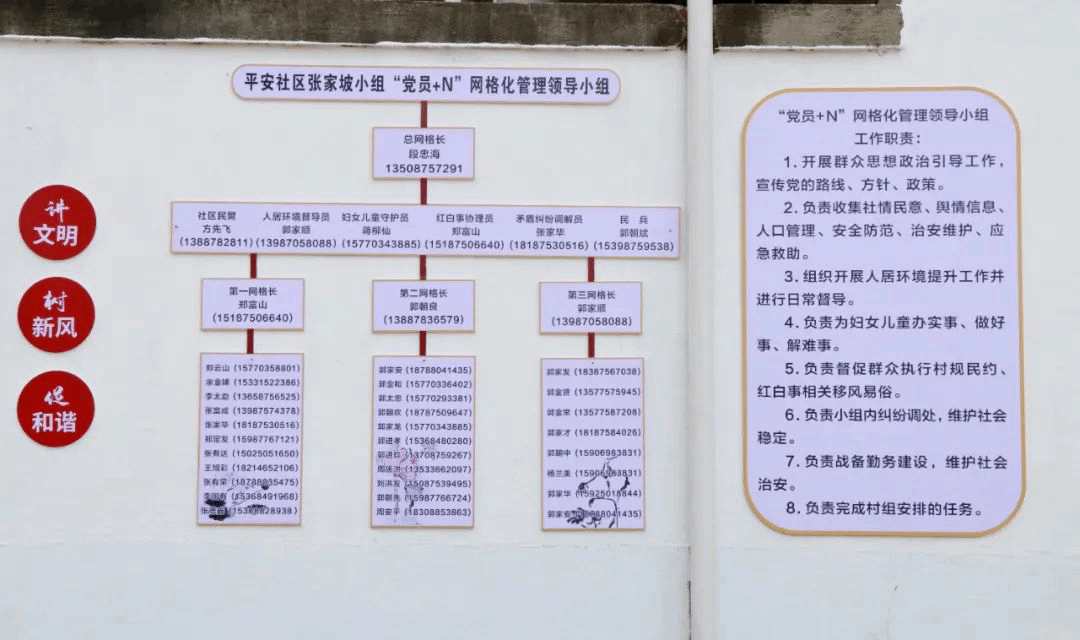 平安社区张家坡小组“党员+N”网格化管理领导小组
总网格长
段忠海
13508757291
社区民警
方先飞
(1388782811)
人居环境督导员
郭家顺
(13987058088)
妇女儿童守护员
蒋柳仙
(15770343885)
红白事协理员
郑富山
(15187506640)
矛盾纠纷调解员
张家华
(18187530516)
民 兵
郭朝斌
(15398759538)
第一网格长
郑富山
(15187506640)
第二网格长
郭朝良
(13887836579)
第三网格长
郭家顺
(13987058088)
郑云山(15770358801)
余金婵(15331522386)
李太勐(13658756525)
张富成(13987574378)
张家华(18187530516)
郑定发(15987767121)
张有达(15025051650)
王旭彩(18214652106)
张有荣(18788035475)
(15368491968)
(15388828938)
郭家安(18788041435)
郭金和(15770336402)
郭太忠(15770293381)
郭朝欢(18787509647)
郭家龙(15770343885)
郭进孝(15368480280)
郭进(13708759267)
周庆(13533662097)
刘洪发(15087539495)
郭朝先(15987766724)
周安平(18308853863)
郭家发(18387567038)
郭金贤(13577575945)
郭金常(13577587208)
郭家才(18187584026)
郭朝中(15906983831)
杨兰美(15906983831)
郭家华(15925018844)
郭家安(18788041435)
讲
文明
树
新风
促
和谐
“党员+N”网格化管理领导小组
工作职责：
1.开展群众思想政治引导工作，
宣传党的路线、方针、政策。
2.负责收集社情民意、舆情信息、
人口管理、安全防范、治安维护、应
急救助。
3.组织开展人居环境提升工作并
进行日常督导。
4.负责为妇女儿童办实事、做好
事、解难事。
5.负责督促群众执行村规民约、
红白事相关移风易俗。
6.负责小组内纠纷调处，维护社会
稳定。
7.负责战备勤务建设，维护社会
治安。
8.负责完成村组安排的任务。